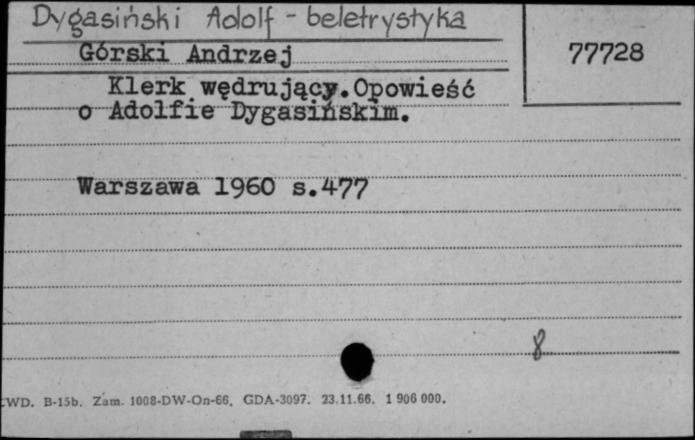 Dygasiński Adolf - beletrystyka
Górski Andrzej
77728
Klerk wędrujący. Opowieść
o Adolfie Dygasińskim.
Warszawa 1960 s.477
8
CWD. B-15b. Zam. 1008-DW-On-66. GDA-3097. 23.11.66. 1 906 000.